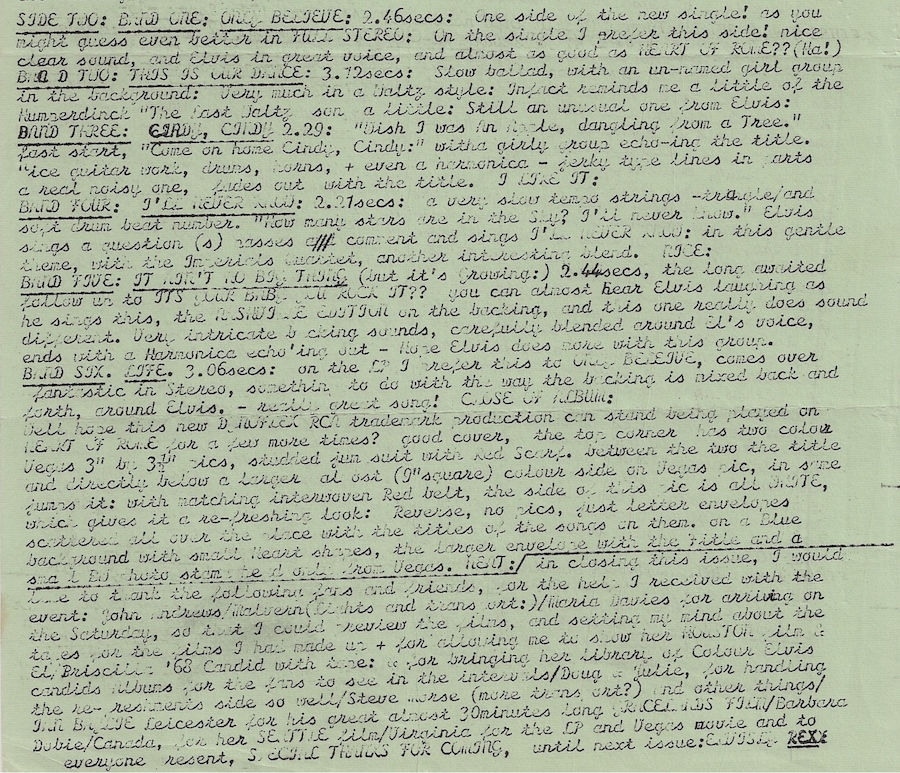 SIDE TWO: BAND ONE: ONLY BELIEVE: 2.46secs: One side of the new single! as you
might guess even better in FULL STEREO: On the single I prefer this side! nice
clear sound, and Elvis in great voice, and almost as good as HEART OF ROME??(Ha!)
BAND TWO: THIS IS OUR DANCE: 3.12secs: Slow ballad, with an un-named girl group
in the background: Very much in a Waltz style: Infact reminds me a little of the
Humperdinck "The Last Waltz son a little: Still an unusual one from Elvis:
BAND THREE: CINDY, CINDY 2.29: "Wish I was An Apple, dangling from a Tree."
fast start, "Come on home Cindy, Cindy:" witha girly group echo-ing the title.
Nice guitar work, drums, horns, + even a harmonica - jerky type lines in parts
a real noisy one, fades out with the title. I LIKE IT:
BAND FOUR: I'LL NEVER KNOW: 2.21secs: a very slow tempo strings -triangle/and
soft drum beat number. "How many stars are in the Sky? I'll never know." Elvis
sings a question (s) passes a comment and sings I'LL NEVER KNOW: in this gentle
theme, with the Imperials Quartet, another interesting blend. NICE:
BAND FIVE: IT AIN'T NO BIG THING (but it's Growing:) 2.44secs, the long awaited
follow up to ITS YOUR BABY YOU ROCK IT?? you can almost hear Elvis laughing as
he sings this, the NASHVILLE EDITION on the backing, and this one really does sound
different. Very intricate backing sounds, carefully blended around El's voice,
ends with a Harmonica echo'ing out - Hope Elvis does more with this group.
BAND SIX. LIFE. 3.06secs: on the LP I prefer this to ONLY BELEIVE, comes over
fantastic in Stereo, something to do with the way the backing is mixed back and
forth, around Elvis. - really great song! CLOSE OF ALBUM:
Well hope this new DYNOFLEX RCA trademark production can stand being played on
HEART OF ROME for a few more times? good cover, the top corner has two colour
Vegas 3" by 3½" pics, studded jum suit with Red Scarf. between the two the title
and directly below a larger almost (9"square) colour side on Vegas pic, in same
jumps it: with matching interwoven Red belt, the side of this pic is all WHITE,
which gives it a re-freshing look: Reverse, no pics, just letter envelopes
scattered all over the place with the titles of the songs on them. on a Blue
background with small Heart shapes, the larger envelope with the Title and a
small EP photo stamp only from Vegas. NEAT:/ in closing this issue, I would
like to thank the following fans and friends, for the help I received with the
event: John Andrews/Malvern(Lights and transport:)/Maria Davies for arriving on
the Saturday, so that I could review the films, and setting my mind about the
tapes for the films I had made up + for allowing me to show her HOUSTON film &
El/Priscilla '68 Candid with tape: & for bringing her library of Colour Elvis
candids Albums for the fans to see in the intervals/Doug & Julie, for handling
the re-reshments side so well/Steve Morse (more transport?) and other things/
IAN BAILIE Leicester for his great almost 30minutes long GRACELANDS FILM/Barbara
Dobie/Canada, for her SEATTLE film/Virginia for the LP and Vegas movie and to
everyone present, SPECIAL THANKS FOR COMING, until next issue: REX: